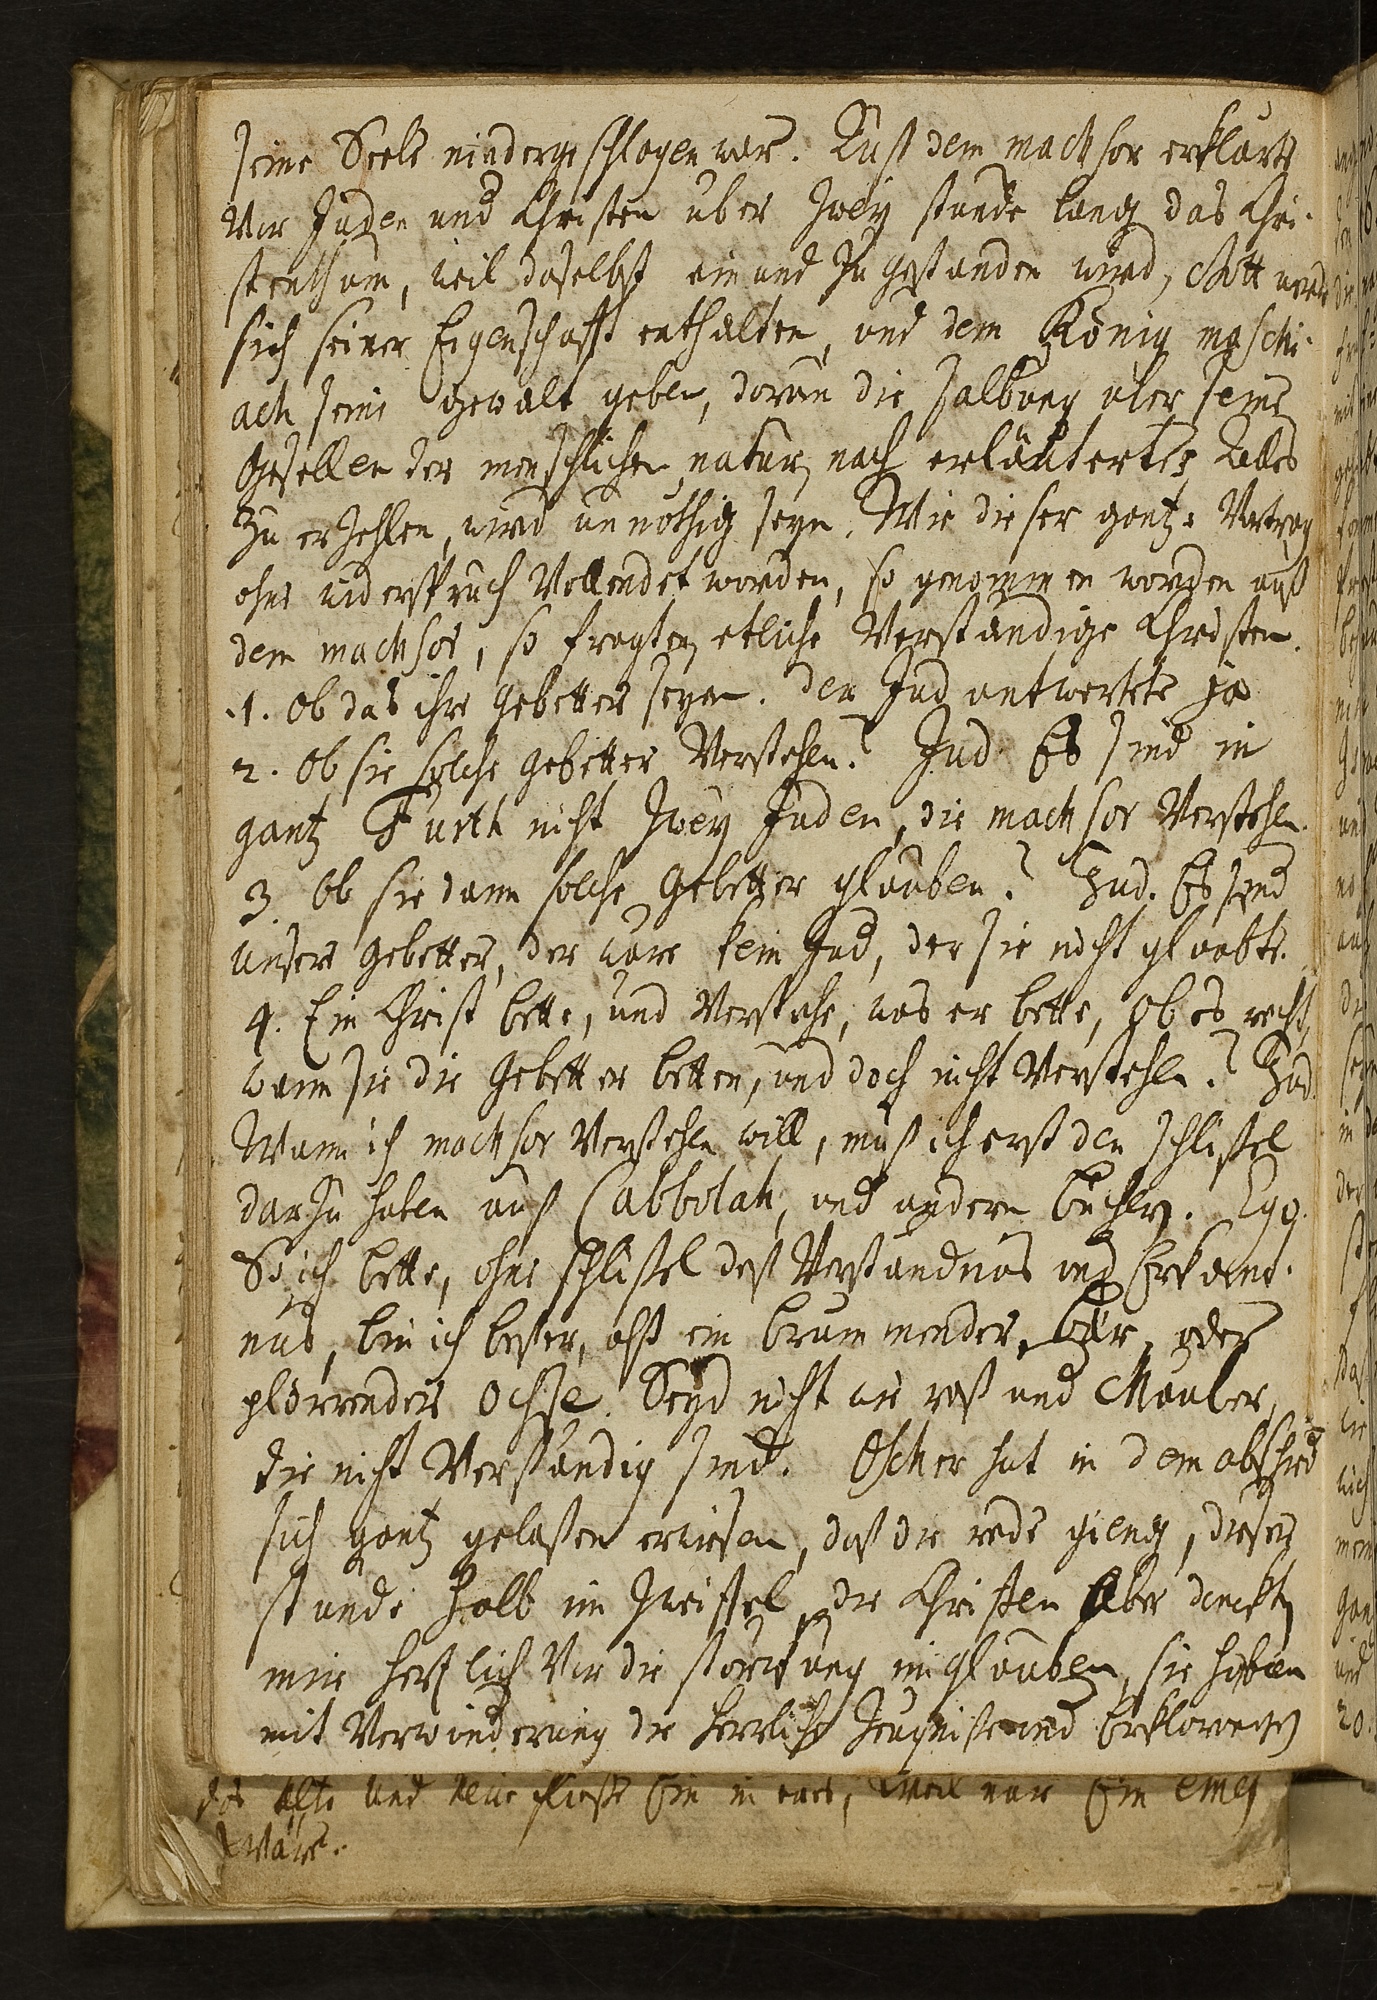 seine Seele niedergeschlagen war. Auß dem machsor erklärte
vor Juden und Christen uber zwey stunde lang das Chri-
stenthum, weil daselbst ein und zugestanden wird, Gott werde
sich seiner Eigenschafft enthalten, und dem König maschi-
ach seine gewalt geben, darum die salbung über seine
Gesellen der menschlichen natur nach erläuterte, Alles
zu erzehlen, wird unnöthig seyn. Wie dieser gantze Vortrag
ohne widerspruch Vollendet worden, so genommen worden auß
dem machsor, so fragten etliche Verständige Christen.
1. Ob das ihre Gebetter seyen. Der Jud antwortete ja
2. Ob sie solche Gebetter Verstehen? Jud. Es sind in
gantz Furth nicht zwey Juden, die machsor Verstehen.
3. Ob sie dann solche Gebetter glauben? Jud. Es sind
unsere Gebetter, der wäre kein Jud, der sie nicht glaubte.
4. Ein Christ bette, und Verstehe, was er bette, Ob es recht,
wann sie die Gebetter betten, und doch nicht Verstehen? Jud.
Wann ich machsor Verstehen will, muß ich erst den schlißel
darzu haben auß Cabbolah, und andern bücher. Egg.
So ich bette, ohne schlißel deß Verständnüs und Erkant-
nüs, bin ich beßer, alß ein brummender bär, oder
plörrender Ochse. Seyd nicht wie roß und Mauler,
die nicht Verständig sind. Oscher hat in dem abschied
sich gantz gelaßen erwiesen, daß die rede gieng, dieser
stunde halb im zweiffel, die Christen aber danckten
mir hertzlich Vor die stärckung im glauben, sie haben
mit Verwunderung die herrliche Zeugniße und Erklärungen
das alte und neue fließe Ein in eins, weil nur Ein
wäre.